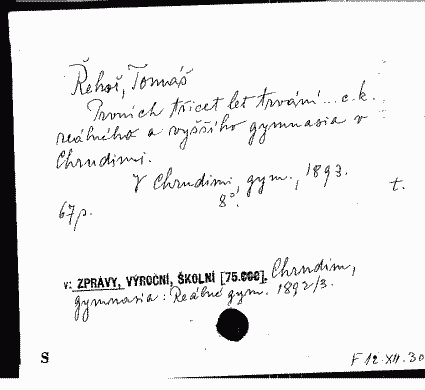 Řehoř, Tomáš
Prvních třicet let trvání... c.k.
reálného a vyššího gymnasia v
Chrudimi.
V Chrudimi, gym., 1893.
8°.
t.
67 p.
v: ZPRÁVY, VÝROČNÍ, ŠKOLNÍ [75.000]. Chrudim,
gymnasia: Reálné gym. 1892/3.
S
F 12.XII.30